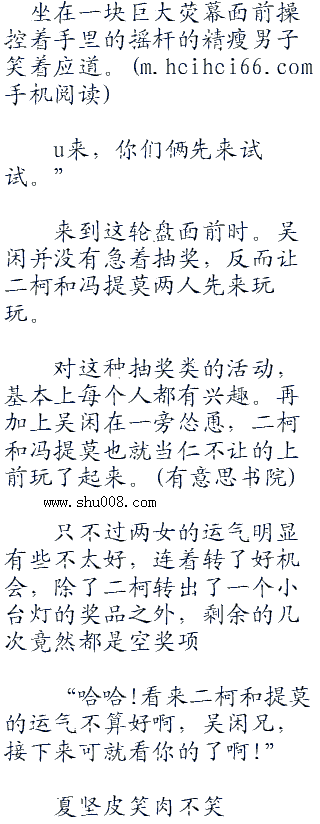 坐在一块巨大荧幕面前操
控着手里的摇杆的精瘦男子
笑着应道。(m.hcihci66.com
手机阅读)
u来，你们俩先来试
试。”
来到这轮盘面前时。吴
闲并没有急着抽奖，反而让
二柯和冯提莫两人先来玩
玩。
对这种抽奖类的活动，
基本上每个人都有兴趣。再
加上吴闲在一旁怂恿，二柯
和冯提莫也就当仁不让的上
前玩了起来。(有意思书院)
www.shu008.com
只不过两女的运气明显
有些不太好，连着转了好机
会，除了二柯转出了一个小
台灯的奖品之外，剩余的几
次竟然都是空奖项
“哈哈!看来二柯和提莫
的运气不算好啊，吴闲兄，
接下来可就看你的了啊!”
夏坚皮笑肉不笑